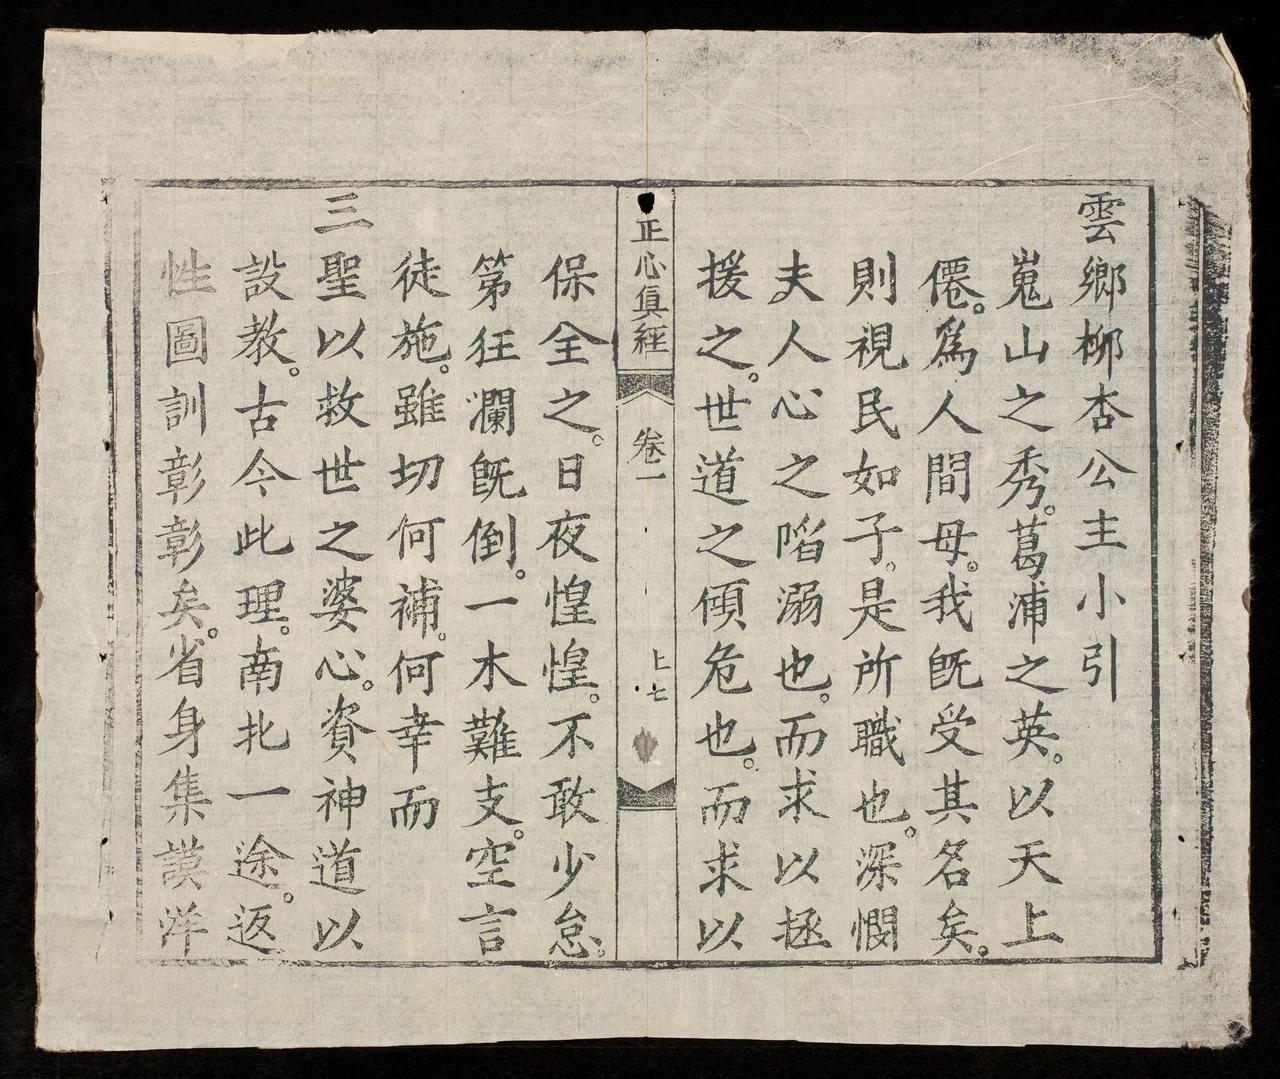 雲鄉柳杏公主小引
嵬山之秀。葛浦之英。以天上
僊。爲人間母。我旣受其名矣。
則視民如子。是所職也。深憫
夫人心之陷溺也。而求以拯
援之。世道之傾危也。而求以
正心眞經 卷一 上七
保全之。日夜惶惶。不敢少怠。
第狂瀾旣倒。一木難支。空言
徒施。雖切何補。何幸而
三聖以救世之婆心。資神道以
設教。古今此理。南北一途。返
性圖訓彰彰矣。省身集謨洋